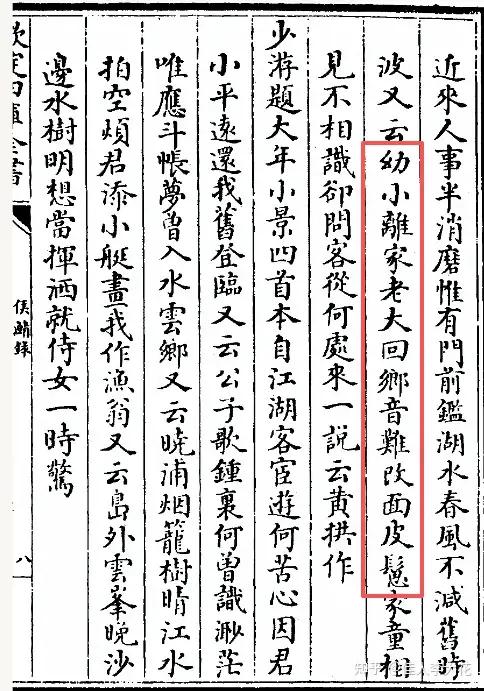 近來人事半消磨惟有門前鑑湖水春風不減舊時
波又云幼小離家老大回鄉音難改面皮鬆家童相
見不相識卻問客從何處來一說云黃拱作
少游題大年小景四首本自江湖客宦遊何苦心因君
小平遠還我舊登臨又云公子歌鍾裏何曾識渺茫
唯應斗帳夢曾入水雲鄉又云晓浦烟籠樹晴江水
拍空煩君添小艇畫我作漁翁又云島外雲峯晚沙
邊水樹明想當揮洒就侍女一時驚
欽定四庫全書
侯鯖錄
八